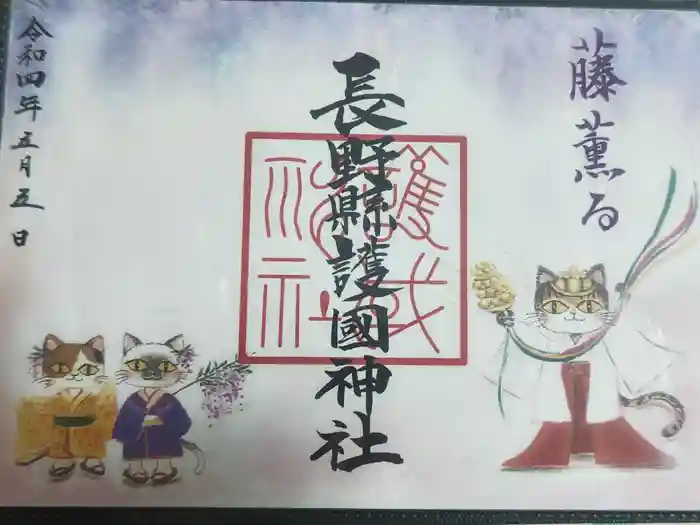 藤薫る
長野縣護國神社
令和四年五月五日